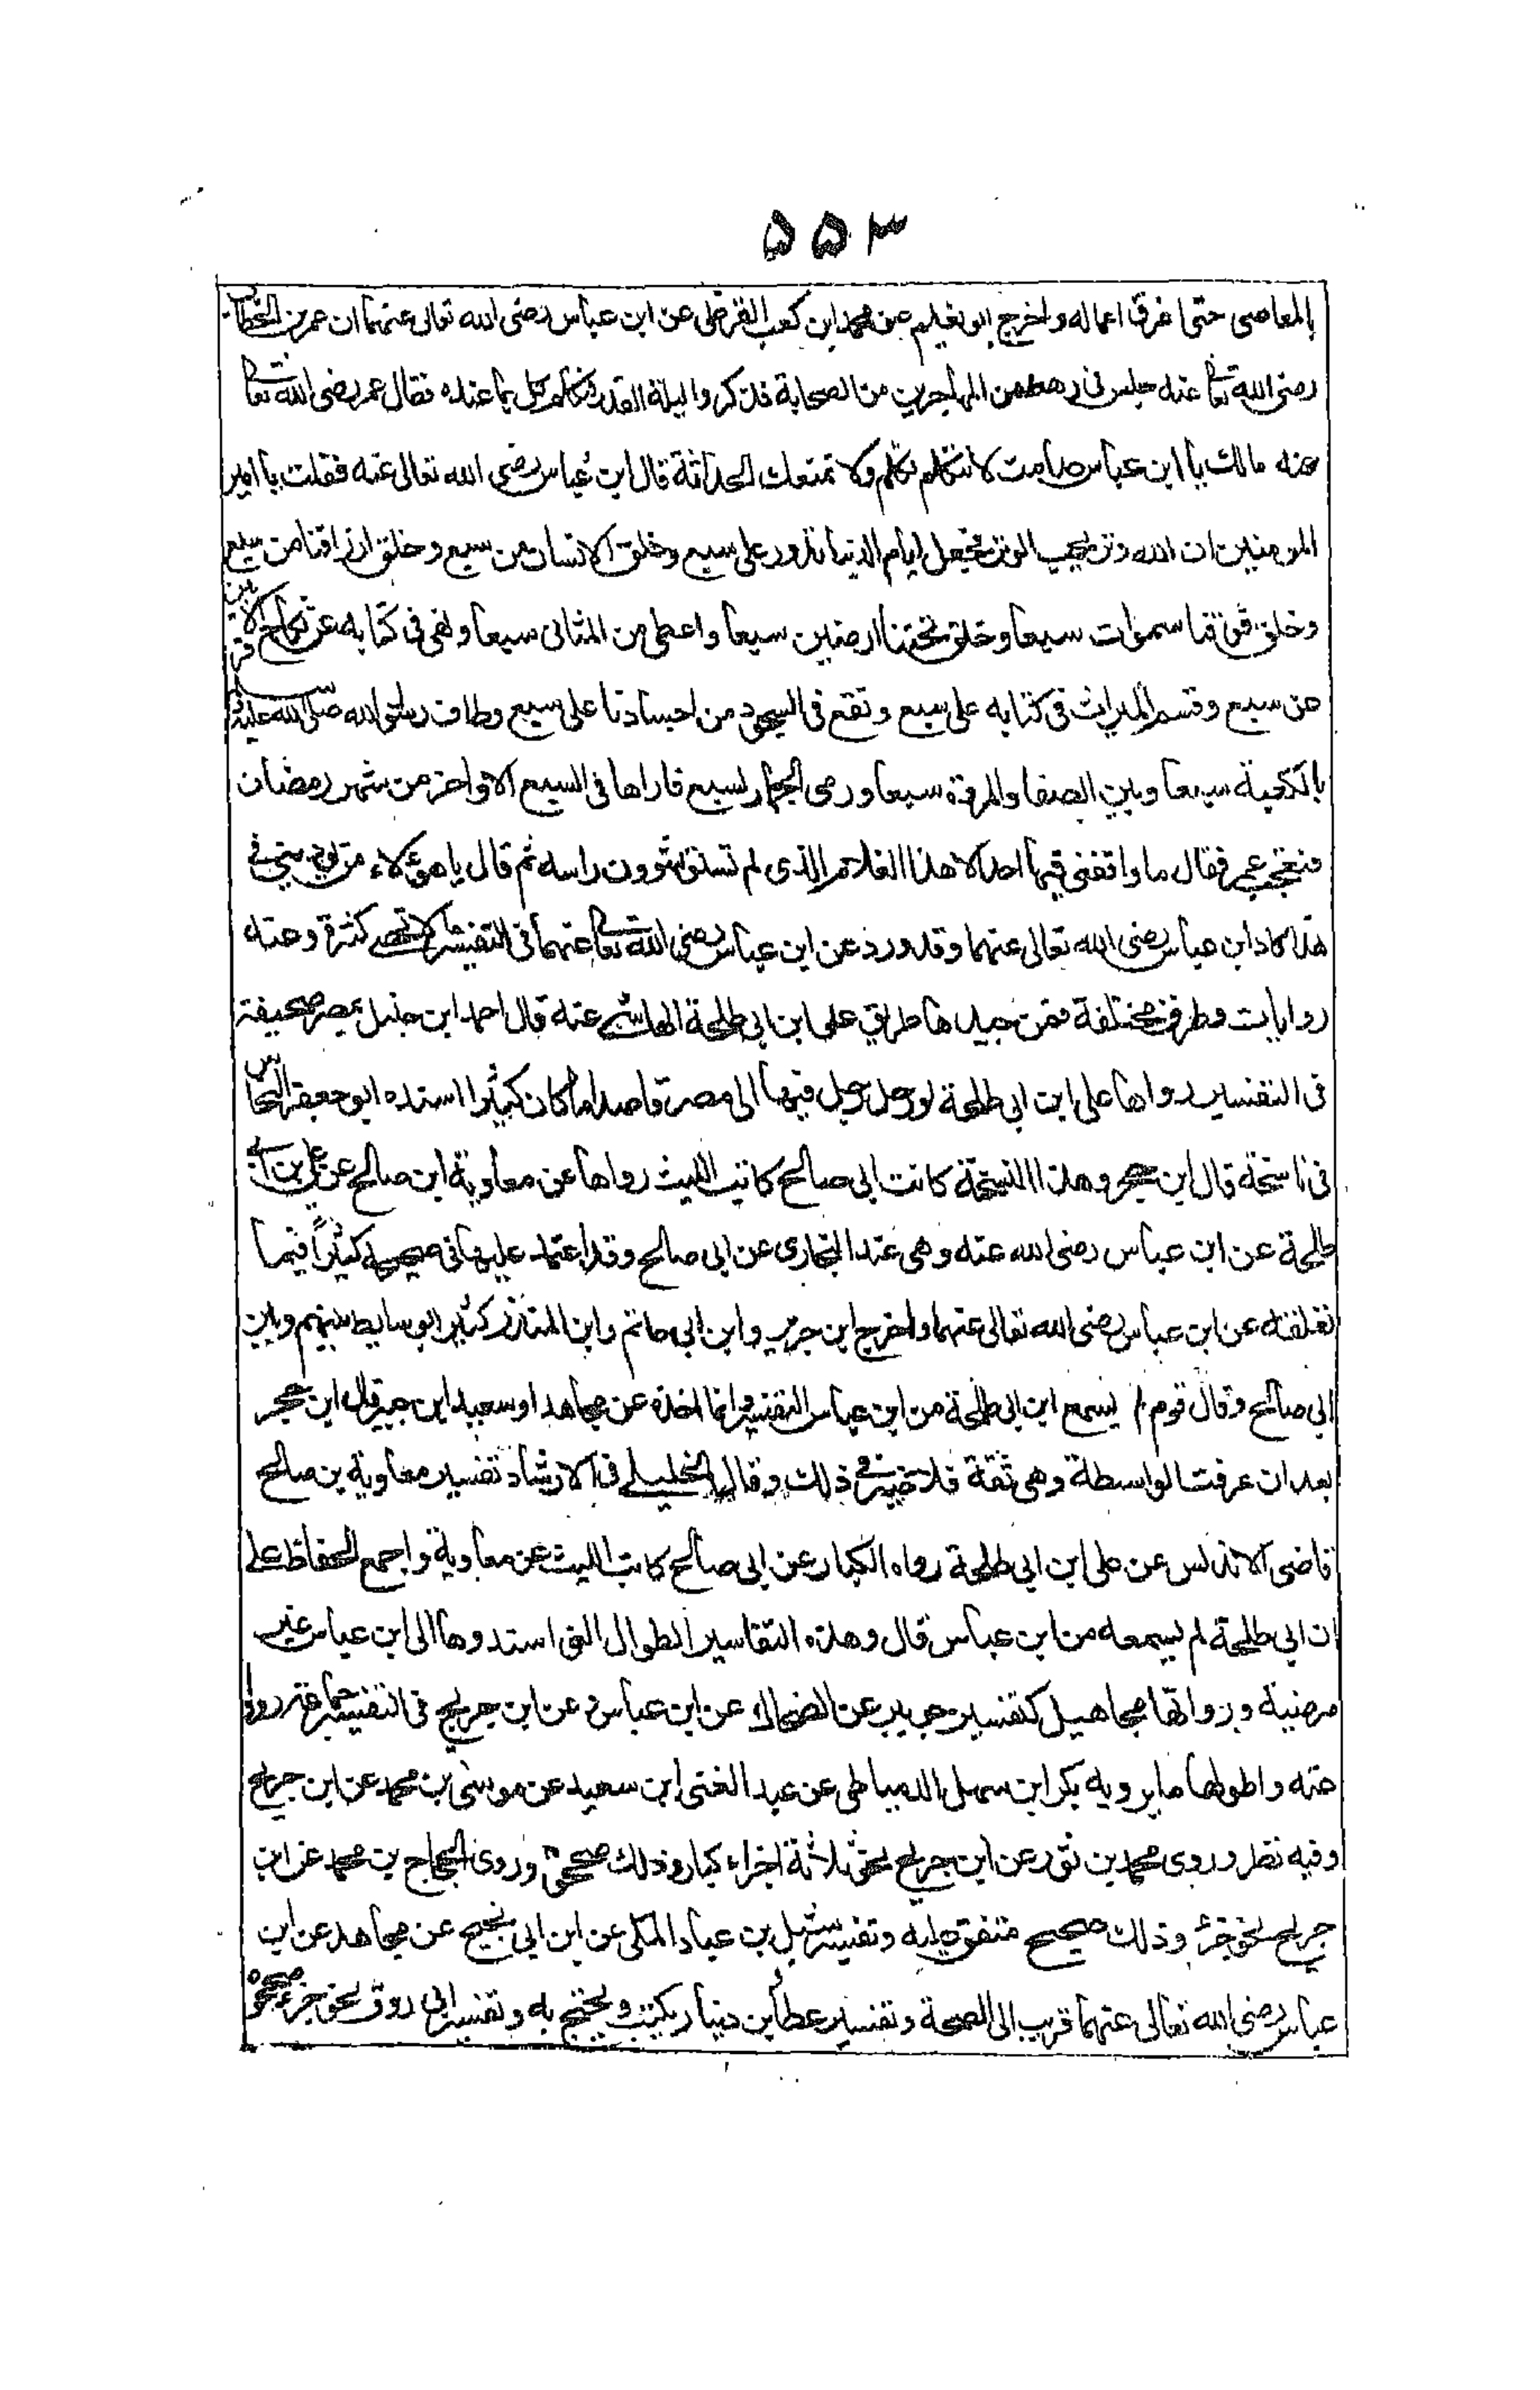 ۵۵۳
بالمعاصی حتی اغرق اعماله واخرج ابو نعیم عن محمد ابن کعب القرظی عن ابن عباس رضی الله تعالی عنهما ان عمر بن الخطاب
رضی الله تعا عنه جلس فی رهط من المهاجرین من الصحابة فذکروا لیلة القدر فتکلم کل بما عنده فقال عمر رضی الله تعا
عنه مالك یا ابن عباس صامت لا تتکلم تکلم ولا تمنعك الحداثة قال ابن عباس رضی الله تعالی عنه فقلت یا امیر
المومنین ان الله وتر یحب الوتر فجعل ایام الدنیا تدور علی سبع وخلق الانسان من سبع وخلق ارزاقنا من سبع
وخلق فوقنا سموات سبعا وخلق تحتنا ارضین سبعا واعطی من المثانی سبعا ونهی فی کتابه عن نکاح الاقربین
من سبع وقسم المیراث فی کتابه علی سبع ونقع فی السجود من اجسادنا علی سبع وطاف رسول الله صلی الله علیه وسلم
بالکعبة سبعا وبین الصفا والمروة سبعا ورمی الجمار لسبع فاراها فی السبع الاواخر من شهر رمضان
فتعجب عمر فقال ما وافقنی فیها احد الا هذا الغلام الذی لم تستق شوون راسه ثم قال یا هؤلاء من یودینی فی
هذا کاد ابن عباس رضی الله تعالی عنهما وقد ورد عن ابن عباس رضی الله تعا عنهما فی التفسیر ما لا تحصی کثرة وعنه
روایات وطرق مختلفة فمن جیدها طریق علی ابن ابی طلحة الهاشمی عنه قال احمد ابن حنبل بمصر صحیفة
فی التفسیر رواها علی ابن ابی طلحة لو رحل رجل فیها الی مصر قاصدا ما کان کثیرا اسنده ابو جعفر النحاس
فی ناسخة قال ابن حجر وهذا النسخة کانت ابی صالح کاتب اللیث رواها عن معاویة ابن صالح عن علی بن ابی
طلحة عن ابن عباس رضی الله عنه وهی عند البخاری عن ابی صالح وقد اعتمد علیها فی صحیحه کثیراً فیما
تعلقه عن ابن عباس رضی الله تعالی عنهما واخرج ابن جریر وابن ابی حاتم وابن المنذر کثیرا بوسایط بینهم وبین
ابی صالح وقال قوم لم یسمع ابن ابی طلحة من ابن عباس التفسیر وانما اخذه عن مجاهد او سعید ابن جبیر قال ابن حجر
بعد ان عرفت الواسطة وهی ثقة فلا ضیر فی ذلك وقال الخلیلی فی الارشاد تفسیر معاویة بن صالح
قاضی الاندلس عن علی ابن ابی طلحة رواه الکبار عن ابی صالح کاتب اللیث عن معاویة واجمع الحفاظ علی
ان ابی طلحة لم یسمعه من ابن عباس قال وهذه التفاسیر الطوال التی اسندوها الی ابن عباس غیر
مرضیة ورواتها مجاهیل کتفسیر جویبر عن الضحاك عن ابن عباس وعن ابن جریج فی التفسیر جماعة رووا
عنه واطولها ما یرویه بکر ابن سهل الدمیاطی عن عبد الغنی ابن سعید عن موسی بن محمد عن ابن جریج
وفیه نظر وروی محمد بن ثور عن ابن جریج نحو ثلاثة اجزاء کبار وذلك صححوه وروی الحجاج بن محمد عن ابن
جریج نحو جزء وذلك صحیح متفق علیه وتفسیر شبل بن عباد المکی عن ابن ابی نجیح عن مجاهد عن ابن
عباس رضی الله تعالی عنهما قریب الی الصحة وتفسیر عطاء بن دینار یکتب ویحتج به وتفسیر ابی روق نحو جزء صححوه